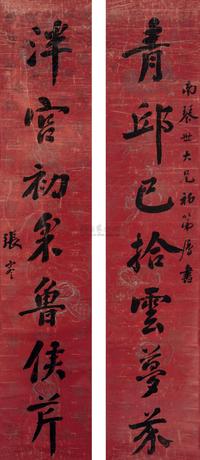 南琴世大兄初第属書
青邱已拾雲夢芥
泮宮初采魯侯芹
張岑